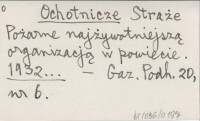 Ochotnicze Straże
Pożarne najżywotniejszą
organizacją w powiecie.
1932... — Gaz. Podh. 20,
nr 6.